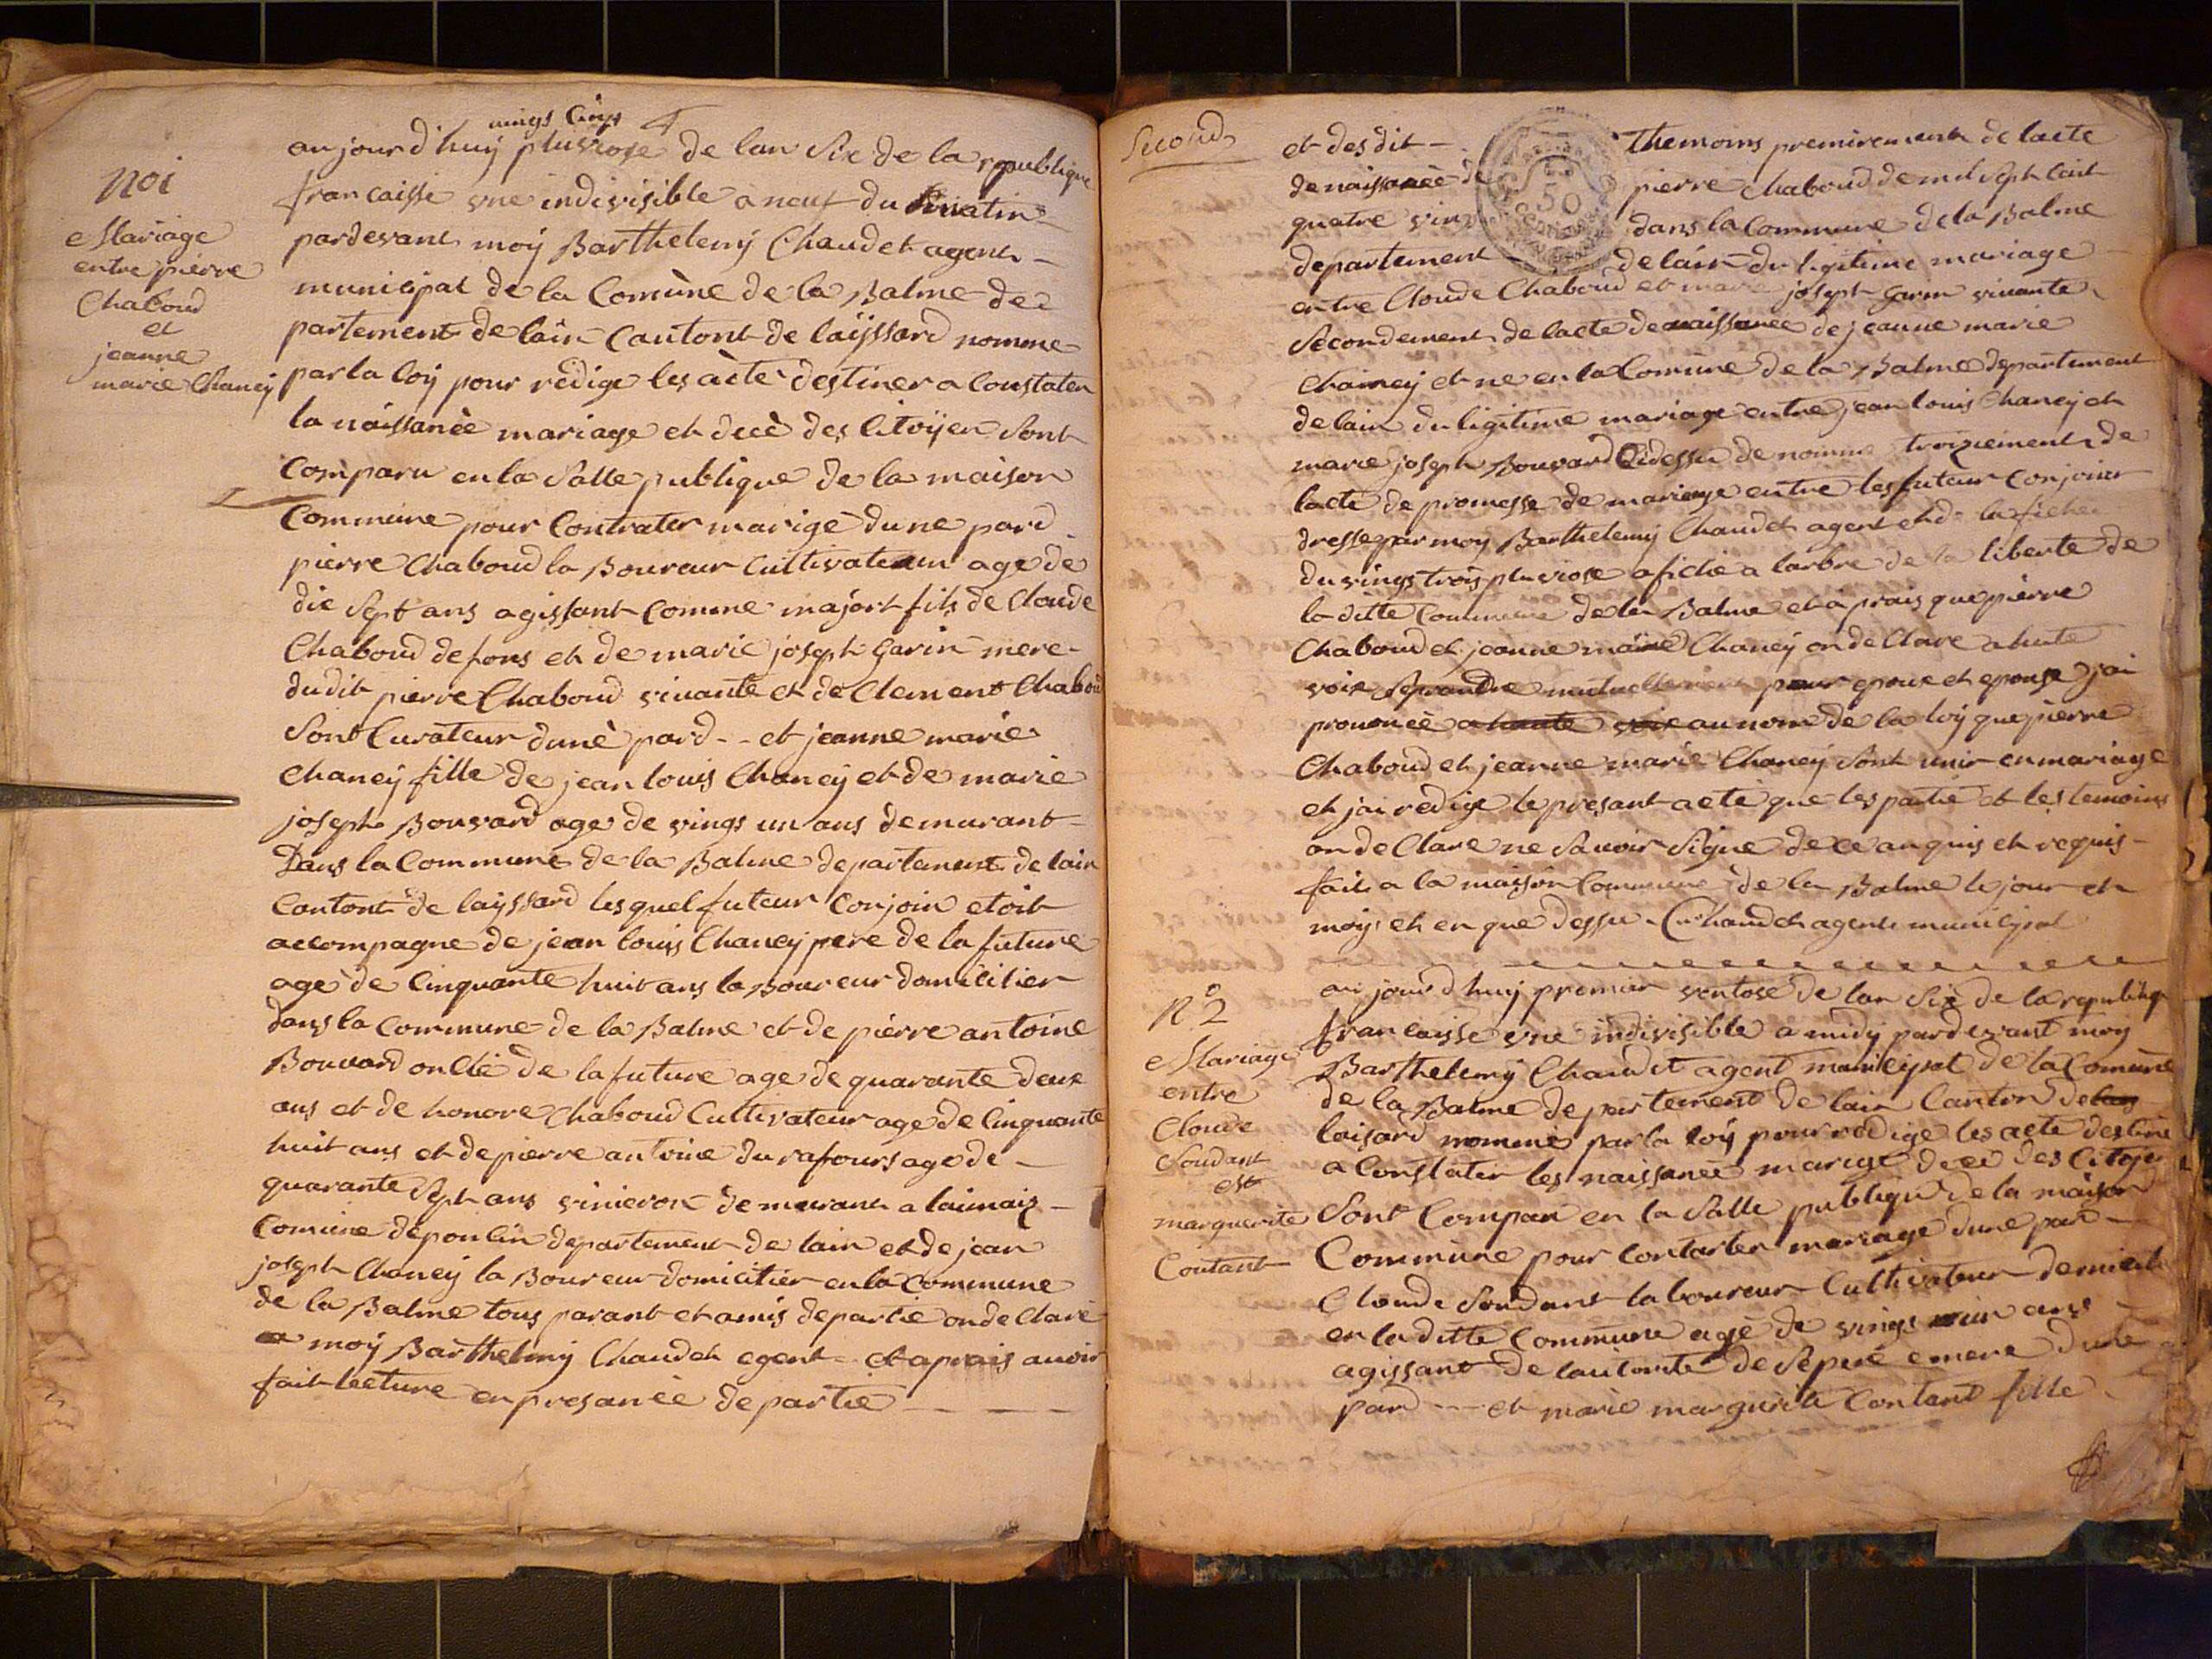 vings cinqt
aujourd'huÿ pluviose de lan Six de la republique
francaisse vne indivisible a neuf du matin
pardevant moÿ Barthelemÿ Chaudet agent
municipal de la Comùne de la Balme de
partement de lain Cantont de laÿssard nomme
par la loÿ pour redige les acte destiner a Constater
la naissancè mariage et decè des Citoÿen Sont
comparu en la Salle publique de la maison
Commune pour Contrater marige dune pard
pierre Chaboud la Boureur Cultivateur age de
dix Sept ans agissant comme majort fils de Claude
Chaboud defons et de marie joseph Garin mere
dudit pierre Chaboud vivante et de Clement Chaboud
Sont Curateur dunè pard -- et jeanne marie
Chaneÿ fille de jean louis Chaneÿ et de marie
joseph Bouvard age de vings un ans demurant
Dans la Commune de la Balme departement de lain
Cantont de laÿssard lesquel futeur Conjoin etoit
accompagne de jean louis Chaneÿ pere de la future
age de Cinquante huit ans la Boureur domicilier
dans la Commune de la Balme et de pierre antoine
Bouvard oncle de la future age de quarante deux
ans et de honore Chaboud Cultivateur age de Cinquante
huit ans et de pierre antoine durafours age de
quarante Sept ans vinieron demurant a
Comune de poncin departement de lain et de jean
joseph Chaneÿ la Boureur domicilier en la Commune
de la Balme tous parant et amis de partie on de Clare
a moÿ Barthelmÿ Chaudet egent et aprais avoir
fait lecture en presancè de partie
noi
Mariage
entre pierre
Chaboud
et
jeanne
marie Chaneÿ
Second
et des dit themoins premirement de lacte
de naissancè de pierre Chaboud de mil Sept Cait
quatre vin dans la Commune de la Balme
departement de lain du legitime mariage
entre Cloude Chaboud et marie joseph Garin vivante
Secondement de lacte de naissance de jeanne marie
Chaineÿ et ne en la Comune de la Balme departement
de lain du ligitime mariage entre jean louis Chaneÿ et
marie joseph Bouvard Cidessu de nomme troiziement de
lacte de promesse de mariage entre les futeur Conjoint
dresse par moÿ Barthelemÿ Chaudet agent et de lafiche
du vings trois pluviose afiche a larbre de la liberte de
la ditte Commune de la Balme et a prais que pierre
Chaboud et jeanne marie Chaneÿ on de Clare a hute
voix Seprandre mutuellement pour epoux et epouse jai
prononcè a haute voix au nom de la loÿ que pierre
Chaboud et jeanne marie Chaneÿ Sont unir en mariage
et jai redige le presant acte que les partie et les temoins
on de Clare ne Savoir Signe de ce anquis et requis
fait a la maison Commune de la Balme le jour et
moÿs et en que dessu. Chaudet agent municipal
N° 2
Mariage
entre
Cloude
Soudant
est
marguerite
Coutant
au jourd'huÿ premier ventose de lan Six de la republique
francaisse vne indivisible a midÿ pardevant moÿ
Barthelemÿ Chaudet agent municipal de la Comune
de la Balme departement de lain Canton de
laisard nommè par la loÿ pour redige les acte destine
a Constater les naissancè marige decè des Citoÿe
Sont Comparu en la Salle publique de la maison
Commùne pour Contarter mariage dune par
Cloude Soudant laboureur Cultivateur demicile
en la ditte Commune age de vings un ans
agissant de lautorite de Sepere emere dune
pard -- et marie marguerite Contant fille